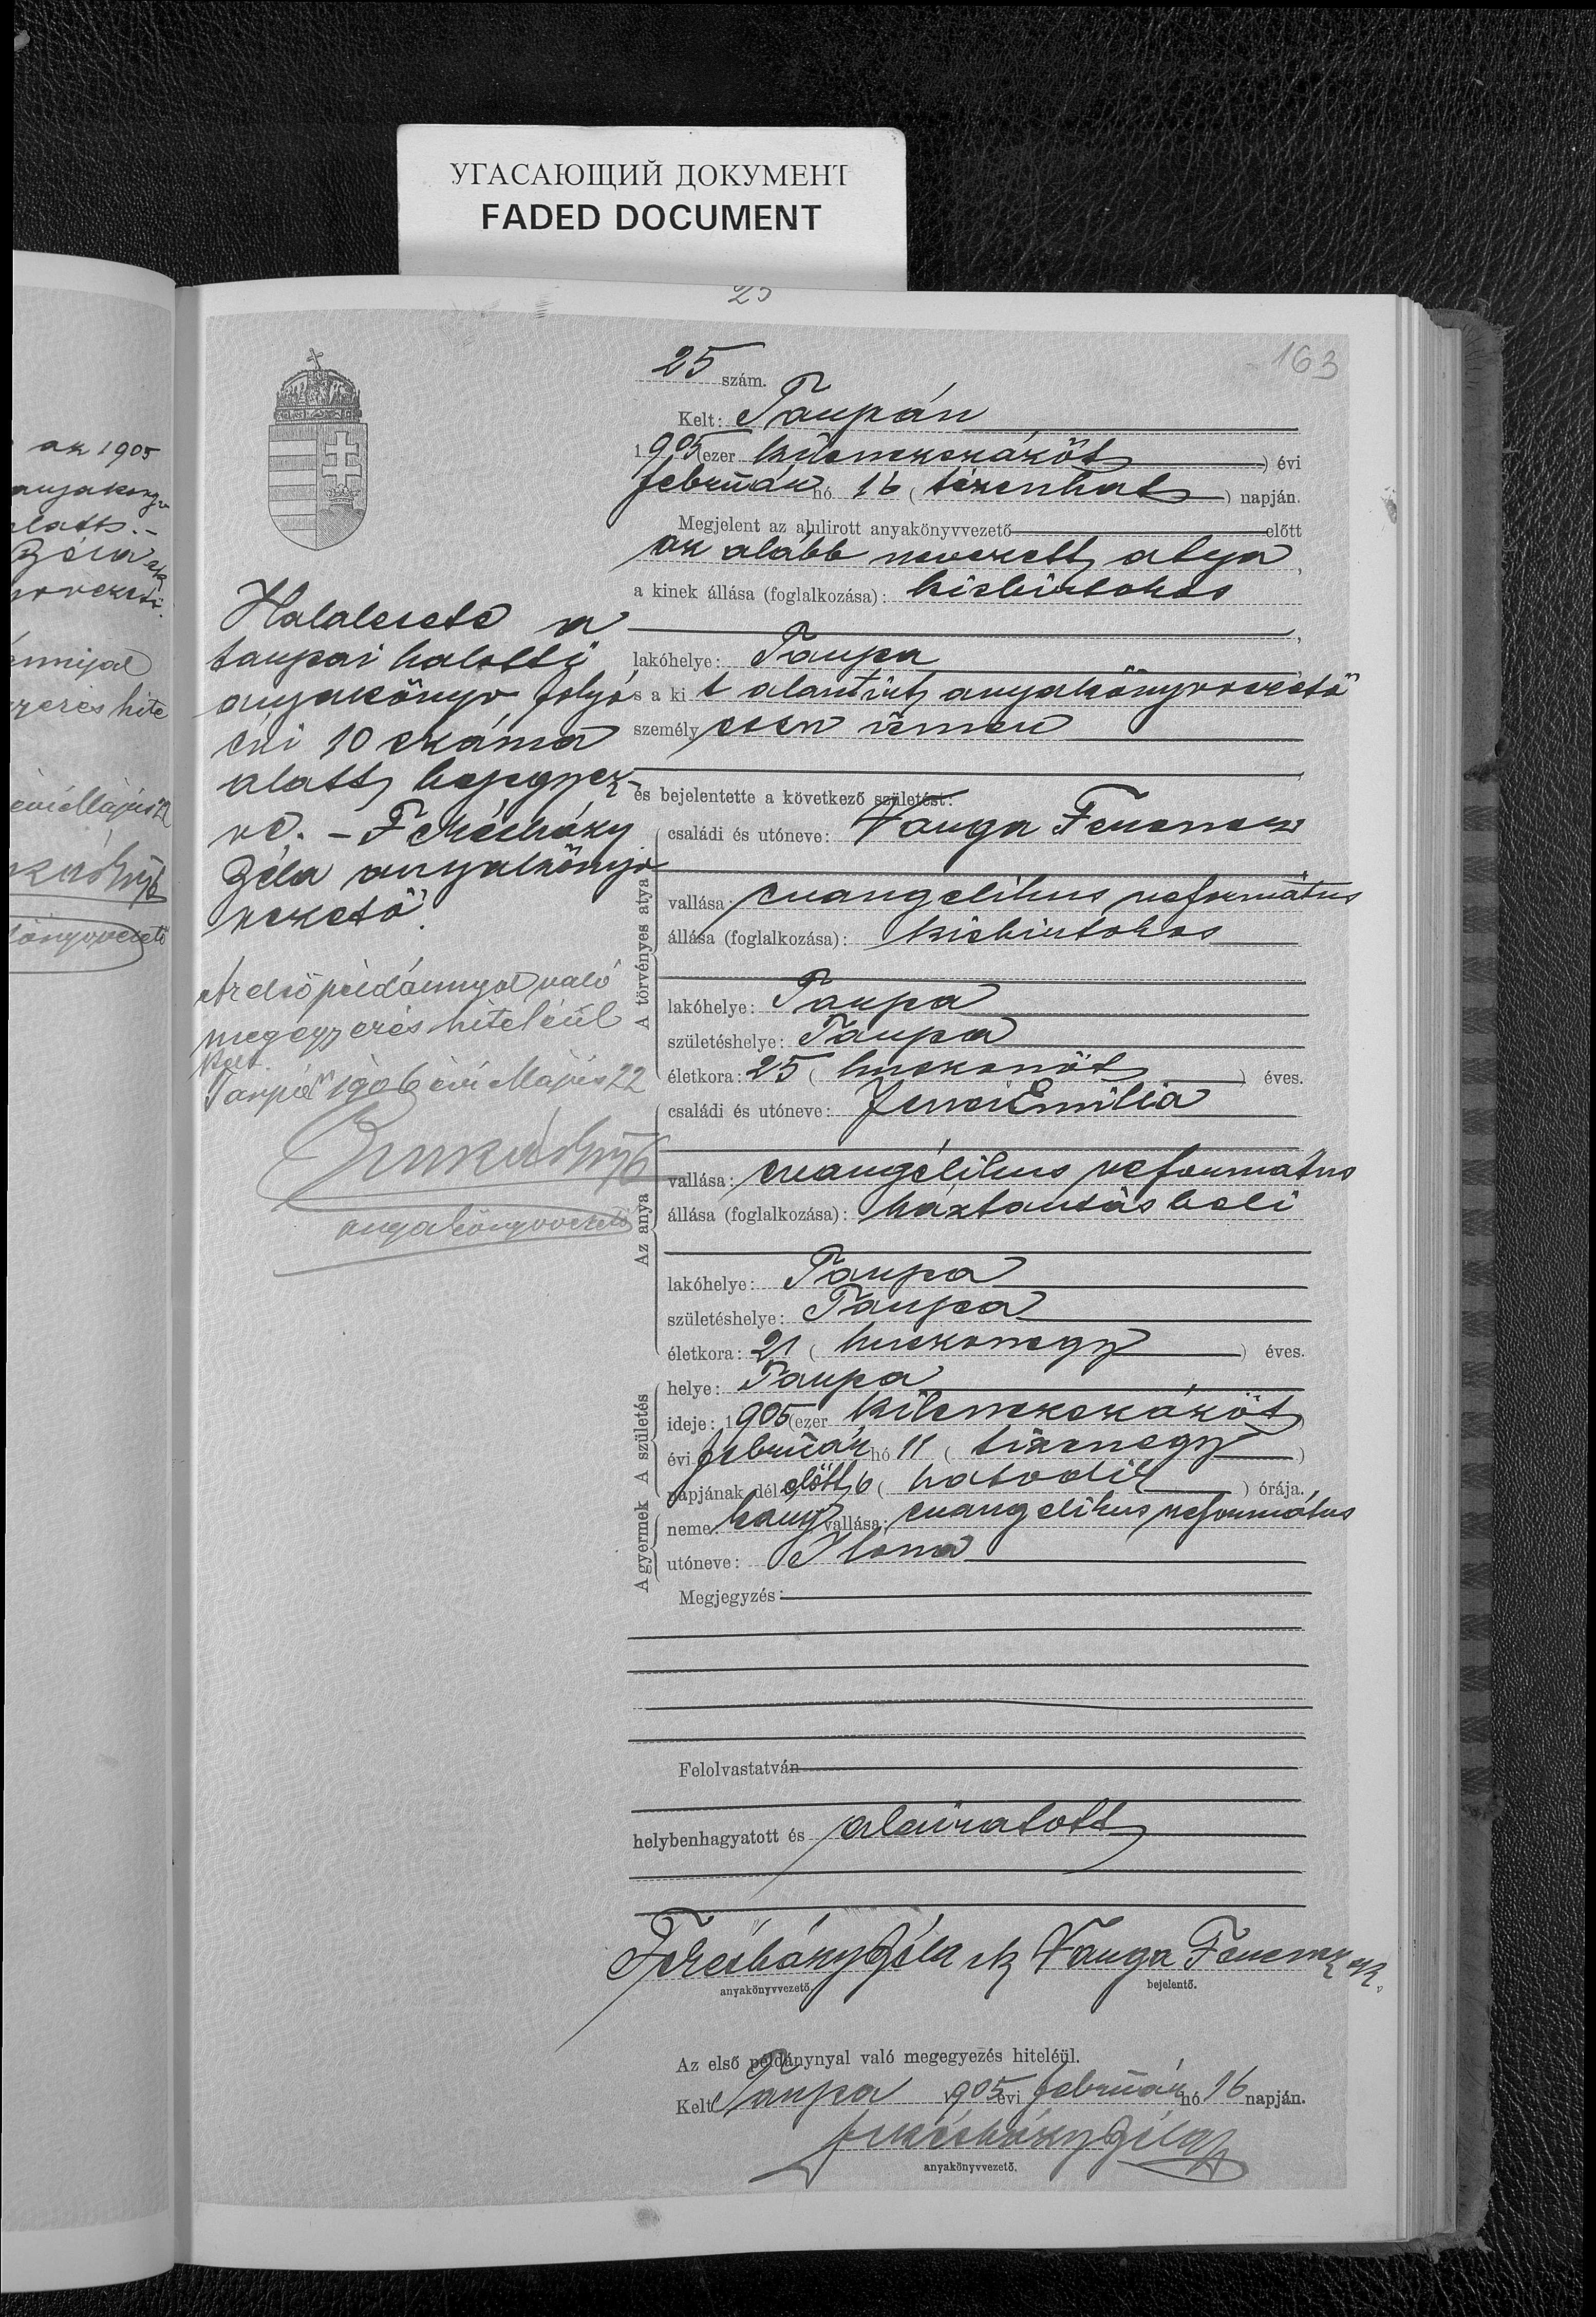 УГАСАЮЩИЙ ДОКУМЕНТ
FADED DOCUMENT
25
163
25 szám.
Kelt: Tarpán
1905 (ezer kilenczszázöt) évi
február hó 16 (tizenhat) napján.
Megjelent az alulirott anyakönyvvezető előtt
az alább nevezett atya,
a kinek állása (foglalkozása): kisbirtokos
lakóhelye: Tarpa
s a ki t alantírt anyakönyvvezető
személyesen ismer
és bejelentette a következő születést:
A törvényes atya
családi és utóneve: Varga Ferencz
vallása: evangelikus református
állása (foglalkozása): kisbirtokos
lakóhelye: Tarpa
születéshelye: Tarpa
életkora: 25 (huszonöt) éves.
Az anya
családi és utóneve: Jenei Emilia
vallása: evangélikus református
állása (foglalkozása): háztartásbeli
lakóhelye: Tarpa
születéshelye: Tarpa
életkora: 21 (huszonegy) éves.
A születés
helye: Tarpa
ideje: 1905 (ezer kilenczszázöt)
évi február hó 11 (tizenegy)
napjának délelőtt 6 (hatodik) órája.
A gyermek
neme: leány vallása: evangelikus református
utóneve: Ilona
Megjegyzés:
Felolvastatván
helybenhagyatott és aláiratott
Béla sk Varga Ferencz sk.
anyakönyvvezető bejelentő.
Az első példánynyal való megegyezés hiteléül.
Kelt Tarpa 1905 évi február hó 16 napján.
Béla
anyakönyvvezető.
Halálesete a
tarpai halotti
anyakönyv folyó
évi 10 száma
alatt bejegyez-
ve. –
Béla anyakönyv
vezető.
Az első példánnyal való
megegyezés hiteléül
kelt
Tarpán 1906 évi Május 22
anyakönyvvezető
az 1905
anyakönyv
alatt. –
Béla sk
évi Május 22